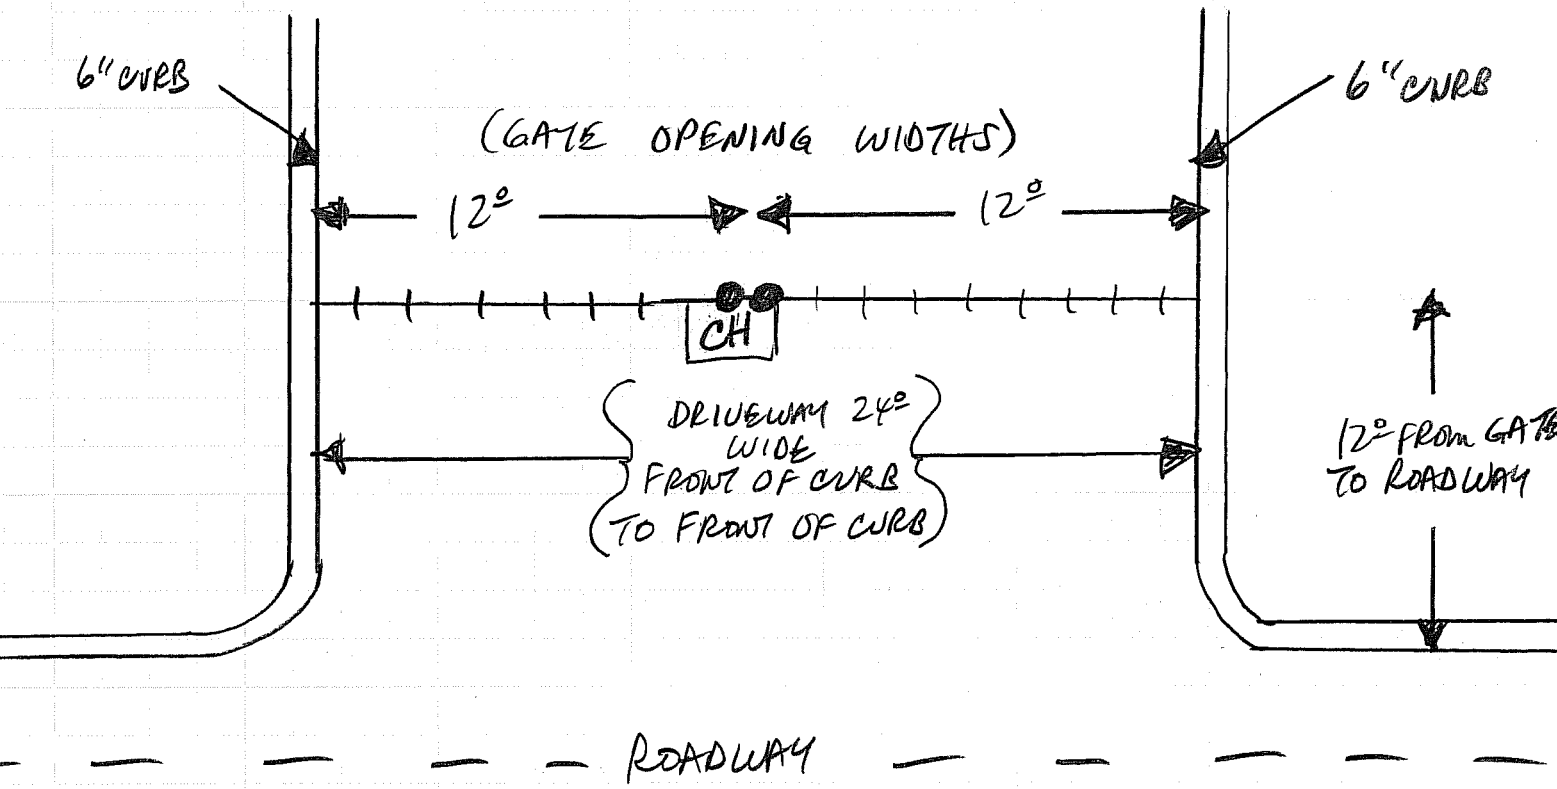 6" CURB
6" CURB
(GATE OPENING WIDTHS)
12º
12º
CH
DRIVEWAY 24º
WIDE
FRONT OF CURB
(TO FRONT OF CURB)
12º FROM GATE
TO ROADWAY
ROADWAY